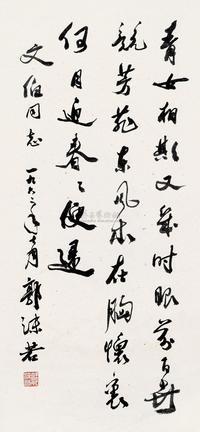 青女相欺又幾時眼前百卉
競芳菲東風本在胸懷裏
迎春々便
文伯同志
一九六二年 月 郭沫若